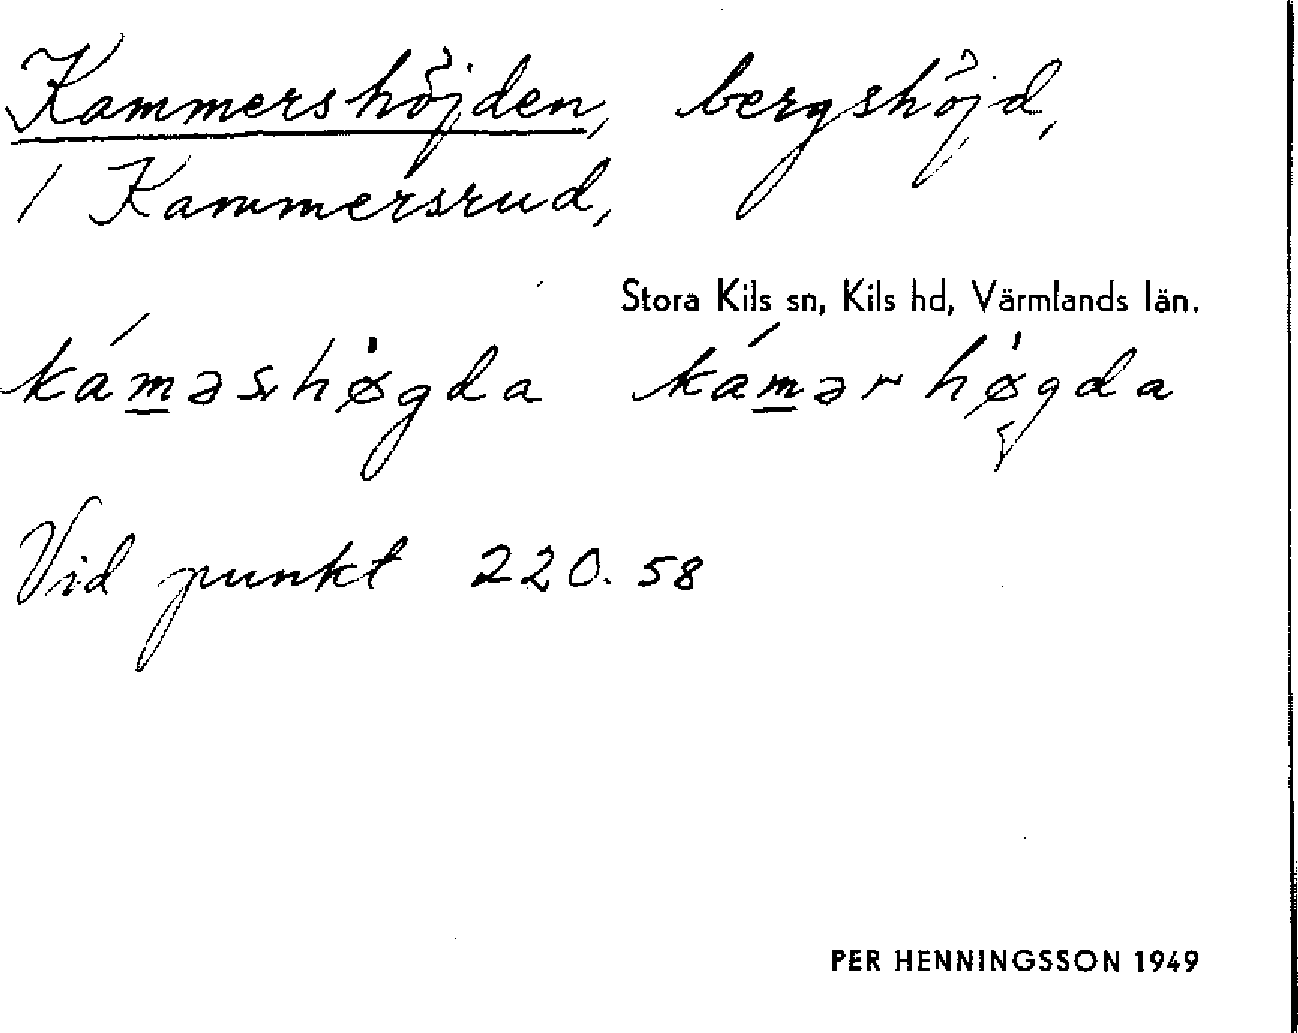 Kammershöjden, bergshöjd,
/ Kammersrud,
Stora Kils sn, Kils hd, Värmlands län.
kám̲əshø̀gda kám̲ərhø̀gda
Vid punkt 220.58
PER HENNINGSSON 1949